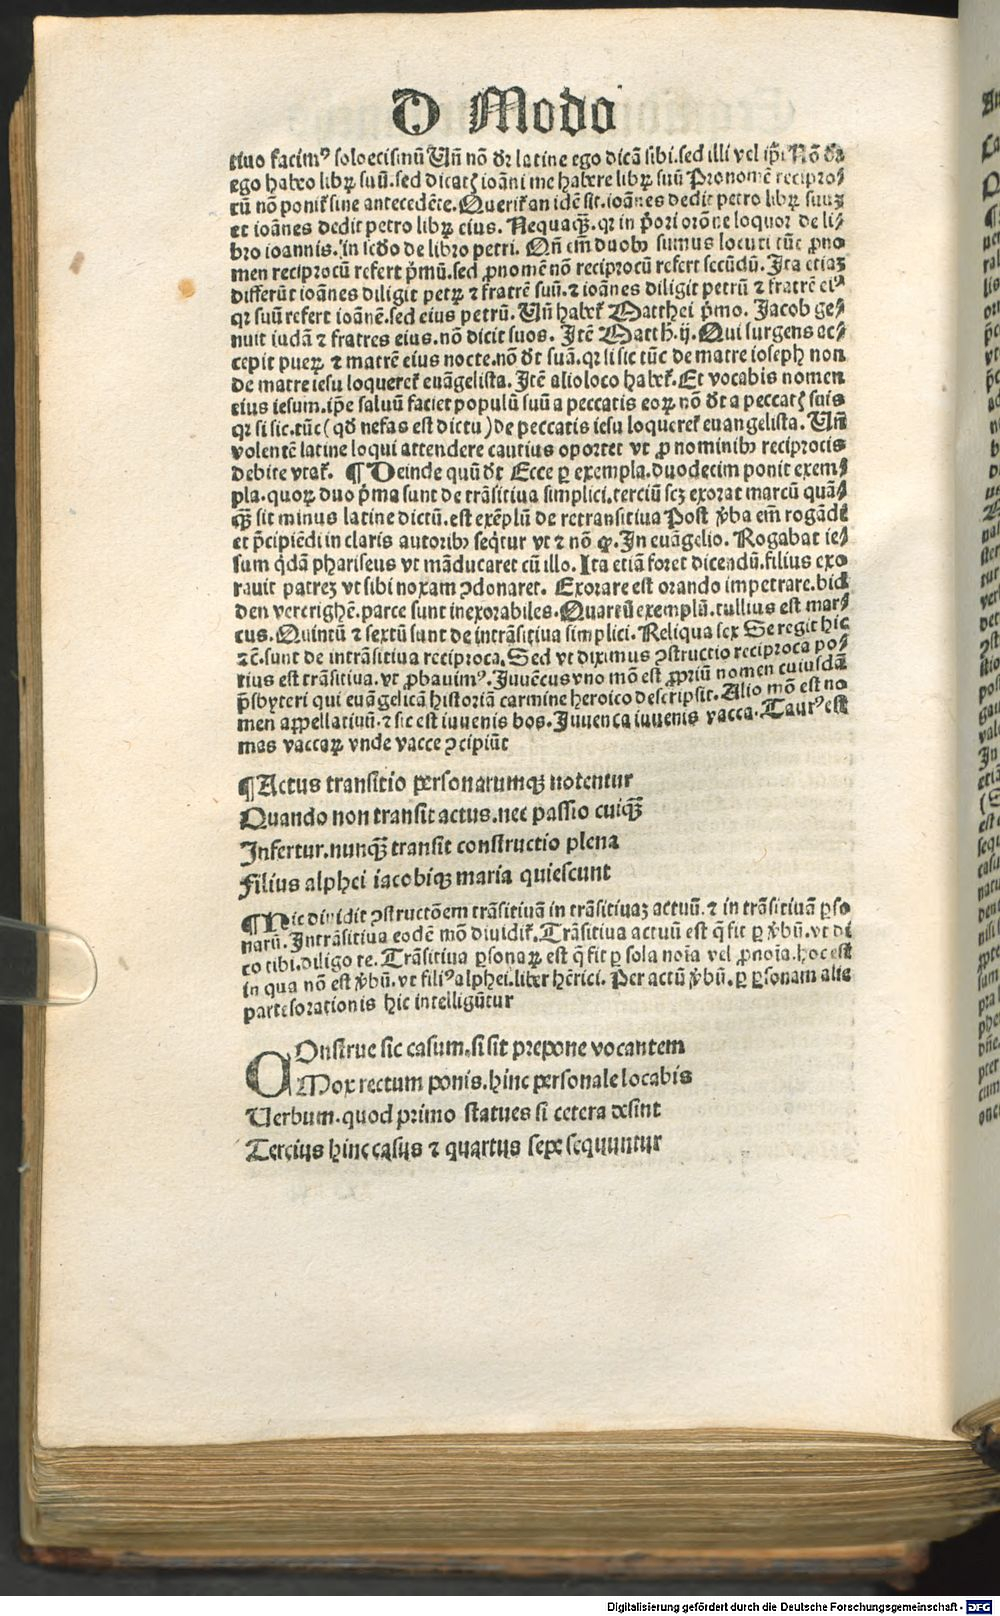 D Modo
tiuo facimꝰ soloecismũ Uñ nõ dr̃ latine ego dicã sibi.sed illi vel ip̃i Nõ
ego habeo libꝝ suũ.sed dicatʒ ioãni me habere libꝝ suũ Pronomẽ recipro⸗
cũ nõ ponit̃ sine antecedẽte.Querit̃ an idẽ sit.ioãnes dedit petro libꝝ suuʒ
et ioãnes dedit petro libꝝ eius. Nequaq̃ʒ.qr in p̃ori orõne loquor de li⸗
bro ioannis.in scd̃o de libro petri. Qñ em̃ duobꝰ sumus locuti tũc ꝓno
men reciprocũ refert p̃mũ.sed ꝓnomẽ nõ reciprocũ refert secũdũ. Ita etiaʒ
differũt ioãnes diligit petꝝ ⁊ fratrẽ suũ.⁊ ioãnes diligit petrũ ⁊ fratrẽ eiꝰ
qr suũ refert ioãnẽ.sed eius petrũ. Uñ habet̃ Matthei p̃mo. Jacob ge⸗
nuit iudã ⁊ fratres eius.nõ dicit suos. Itẽ Matth.ij. Qui surgens ac⸗
cepit pueꝝ ⁊ matrẽ eius nocte.nõ dr̃ suã.qr si sic tũc de matre ioseph non
de matre iesu loqueret̃ euãgelista. Itẽ alio loco habet̃. Et vocabis nomen
eius iesum.ip̃e saluũ faciet populũ suũ a peccatis eoꝝ nõ dr̃ a peccatʒ suis
qr si sic.tũc (qd̃ nefas est dictu) de peccatis iesu loqueret̃ euangelista. Uñ
volentẽ latine loqui attendere cautius oportet vt ꝓnominibꝰ reciprocis
debite vtat̃. ¶ Deinde quũ dr̃ Ecce ꝑ exempla.duodecim ponit exem⸗
pla.quoꝝ duo p̃ma sunt de trãsitiua simplici.terciũ scʒ exorat marcũ quã⸗
q̃ʒ sit minus latine dictũ.est exẽplũ de retransitiua Post v̾ba em̃ rogãdi
et p̃cipiẽdi in claris autoribꝰ seq̃tur vt ⁊ nõ ꝙ. In euãgelio. Rogabat ie⸗
sum q̃dã phariseus vt mãducaret cũ illo. Ita etiã foret dicendũ.filius exo
rauit patreʒ vt sibi noxam ꝯdonaret. Exorare est orando impetrare.bid
den vercrighẽ.parce sunt inexorabiles. Quartũ exemplũ.tullius est mar⸗
cus. Quintũ ⁊ sextũ sunt de intrãsitiua simplici. Reliqua sex Se regit hic
⁊c̃.sunt de intrãsitiua reciproca. Sed vt diximus ꝯstructio reciproca po⸗
tius est trãsitiua.vt ꝓbauimꝰ. Juuẽcus vno mõ est ꝓpriũ nomen cuiusdã
p̃sbyteri qui euãgelicã historiã carmine heroico descripsit. Alio mõ est no
men appellatiuũ.⁊ sic est iuuenis bos. Juuenca iuuenis vacca. Taurꝰ est
mas vaccaꝝ vnde vacce ꝯcipiũt
¶ Actus transitio personarumqʒ notentur
Quando non transit actus.nec passio cuiq̃ʒ
Infertur.nunq̃ʒ transit constructio plena
Filius alphei iacobiqʒ maria quiescunt
¶ Hic diuidit ꝯstructõem trãsitiuã in trãsitiuaʒ actuũ.⁊ in trãsitiuã ꝑso
narũ. Intrãsitiua eodẽ mõ diuidit̃. Trãsitiua actuũ est q̃ fit ꝑ v̾bũ.vt di
co tibi.diligo te. Trãsitiua ꝑsonaꝝ est q̃ fit ꝑ sola noĩa vel ꝓnoĩa.hoc est
in qua nõ est v̾bũ.vt filiꝰ alphei.liber hẽrici. Per actũ v̾bũ.ꝑ ꝑsonam alie
partes orationis hic intelligũtur
COnstrue sic casum.si sit prepone vocantem
Mox rectum ponis.hinc personale locabis
Uerbum.quod primo statues si cetera desint
Tercius hinc casus ⁊ quartus sepe sequuntur
Digitalisierung gefördert durch die Deutsche Forschungsgemeinschaft - DFG